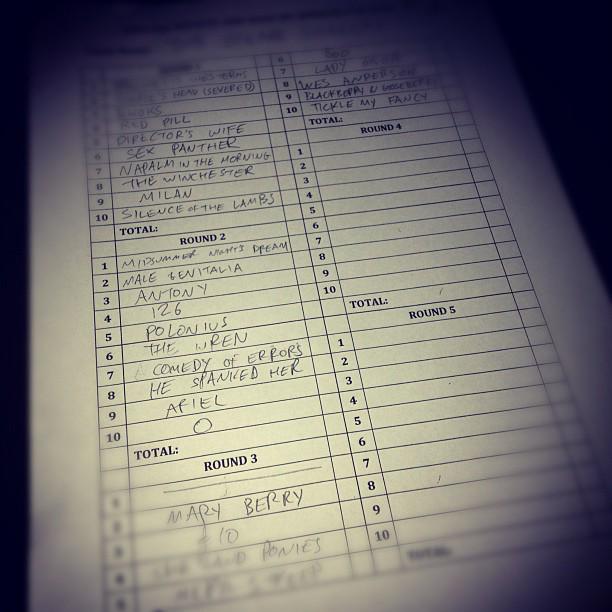 HEAD (SEVERED)
RED PILL
DIRECTOR'S WIFE
6 SEX PANTHER
7 NAPALM IN THE MORNING
8 THE WINCHESTER
9 MILAN
10 SILENCE OF THE LAMBS
TOTAL:
ROUND 2
1 MIDSUMMER NIGHT'S DREAM
2 MALE GENITALIA
3 ANTONY
4 126
5 POLONIUS
6 THE WREN
7 COMEDY OF ERRORS
8 HE SPANKED HER
9 ARIEL
10 O
TOTAL:
ROUND 3
MARY BERRY
10
AND PONIES
6
7 LADY
8 WES ANDERSON
9 BLACKBERRY & GOOSEBERRY
10 TICKLE MY FANCY
TOTAL:
ROUND 4
1
2
3
4
5
6
7
8
9
10
TOTAL:
ROUND 5
1
2
3
4
5
6
7
8
9
10
TOTAL: